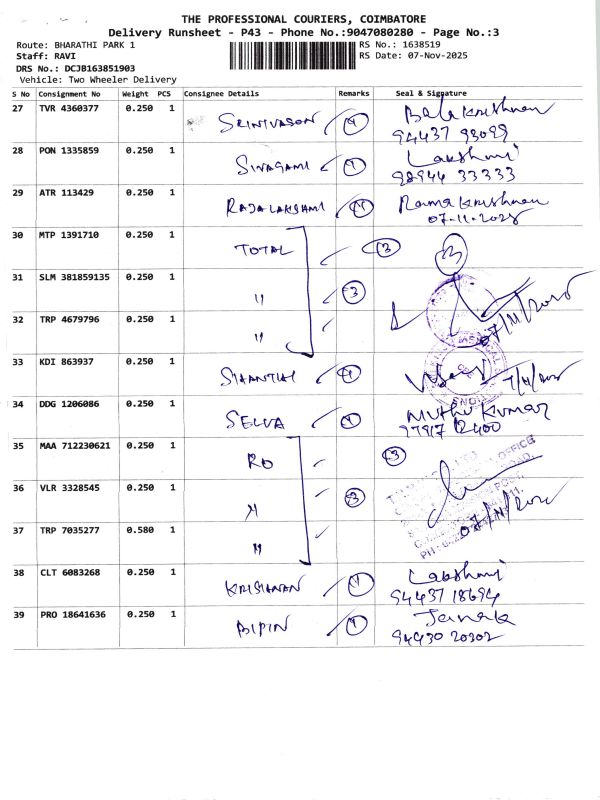 THE PROFESSIONAL COURIERS, COIMBATORE
Delivery Runsheet - P43 - Phone No.:9047080280 - Page No.:3
Route: BHARATHI PARK 1 RS No.: 1638519
Staff: RAVI RS Date: 07-Nov-2025
DRS No.: DCJB163851903
Vehicle: Two Wheeler Delivery
S No Consignment No Weight PCS Consignee Details Remarks Seal & Signature
27 TVR 4360377 0.250 1 SRINIVASON 1 Bala Krishnan
94437 93099
28 PON 1335859 0.250 1 SIVAGAMI 1 Lakshmi
98944 33333
29 ATR 113429 0.250 1 RAJALAKSHMI Rama Krishnan
07-11-2025
30 MTP 1391710 0.250 1 TOTAL 3 3
31 SLM 381859135 0.250 1 " 3
07/11/2025
32 TRP 4679796 0.250 1 "
33 KDI 863937 0.250 1 SHANTHI 1 7/11/2025
34 DDG 1206086 0.250 1 SELVA 1 Muthu Kumar
97917 12400
35 MAA 712230621 0.250 1 RO 3
OFFICE
ROAD,
36 VLR 3328545 0.250 1 " 3
07/11/2025
37 TRP 7035277 0.580 1 "
38 CLT 6083268 0.250 1 KRISHNAN 1 Lakshmi
94437 18694
39 PRO 18641636 0.250 1 BIPIN 1 Janak
94430 20202